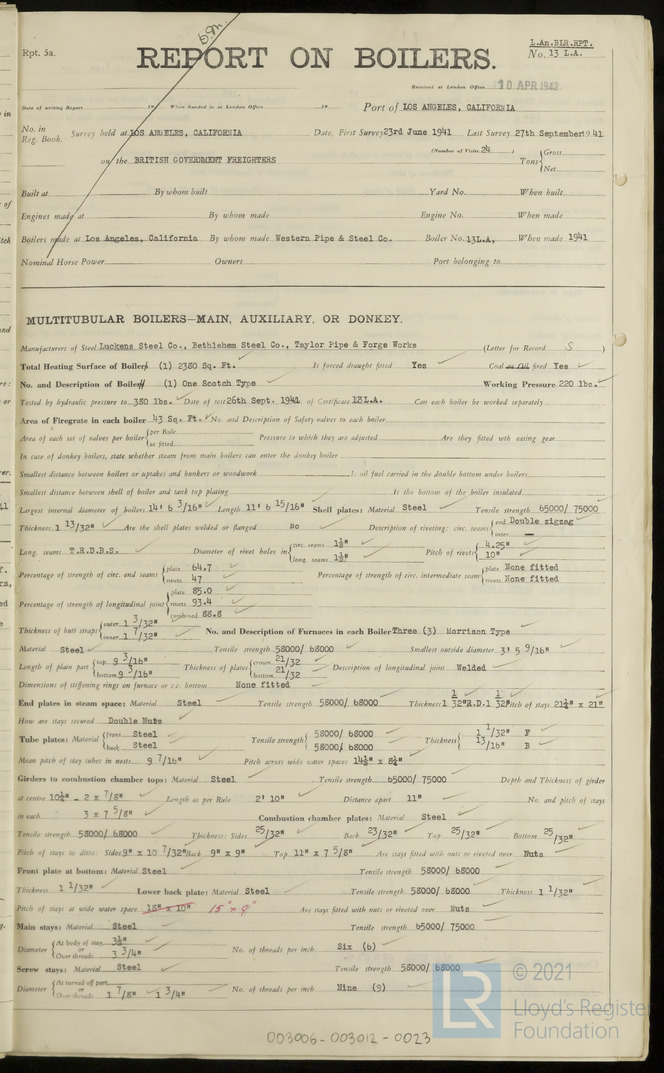 L.An.BLR.RPT.
Rpt. 5a.
REPORT ON BOILERS.
No. 13 L.A.
Received at London Office 10 APR 1942
Date of writing Report 19 When handed in at London Office 19 Port of LOS ANGELES, CALIFORNIA
No. in Reg. Book. Survey held at LOS ANGELES, CALIFORNIA Date, First Survey 23rd June 1941 Last Survey 27th September 19 41
(Number of Visits 24 )
on the BRITISH GOVERNMENT FREIGHTERS Tons { Gross Net
Built at By whom built Yard No. When built
Engines made at By whom made Engine No. When made
Boilers made at Los Angeles, California By whom made Western Pipe & Steel Co. Boiler No. 13L.A. When made 1941
Nominal Horse Power Owners Port belonging to
MULTITUBULAR BOILERS—MAIN, AUXILIARY, OR DONKEY.
Manufacturers of Steel Luckens Steel Co., Bethlehem Steel Co., Taylor Pipe & Forge Works (Letter for Record S )
Total Heating Surface of Boilers (1) 2380 Sq. Ft. Is forced draught fitted Yes Coal or Oil fired Yes
No. and Description of Boilers (1) One Scotch Type Working Pressure 220 lbs.
Tested by hydraulic pressure to 380 lbs. Date of test 26th Sept. 1941 No. of Certificate 13L.A. Can each boiler be worked separately
Area of Firegrate in each boiler 43 Sq. Ft. No. and Description of Safety valves to each boiler
Area of each set of valves per boiler { per Rule as fitted Pressure to which they are adjusted Are they fitted with easing gear
In case of donkey boilers, state whether steam from main boilers can enter the donkey boiler
Smallest distance between boilers or uptakes and bunkers or woodwork Is oil fuel carried in the double bottom under boilers
Smallest distance between shell of boiler and tank top plating Is the bottom of the boiler insulated
Largest internal diameter of boilers 14' 6 3/16" Length 11' 6 15/16" Shell plates: Material Steel Tensile strength 65000/ 75000
Thickness 1 13/32" Are the shell plates welded or flanged No Description of riveting: circ. seams { end Double zigzag inter —
Long. seams T.R.D.B.S. Diameter of rivet holes in { circ. seams 1½" long. seams 1½" Pitch of rivets { 4.25" 10"
Percentage of strength of circ. end seams { plate 64.7 rivets 47 Percentage of strength of circ. intermediate seam { plate None fitted rivets None fitted
Percentage of strength of longitudinal joint { plate 85.0 rivets 93.4 combined 88.8
Thickness of butt straps { outer 1 3/32" inner 1 7/32" No. and Description of Furnaces in each Boiler Three (3) Morrison Type
Material Steel Tensile strength 58000/ 68000 Smallest outside diameter 3' 5 9/16"
Length of plain part { top 9 3/16" bottom 9 3/16" Thickness of plates { crown 21/32 bottom 21/32 Description of longitudinal joint Welded
Dimensions of stiffening rings on furnace or c.c. bottom None fitted
End plates in steam space: Material Steel Tensile strength 58000/ 68000 Thickness 1 1/32"R.D.1 1/32" Pitch of stays 21½" x 21"
How are stays secured Double Nuts
Tube plates: Material { front Steel back Steel Tensile strength { 58000/ 68000 58000/ 68000 Thickness { 1 1/32" F 13/16" B
Mean pitch of stay tubes in nests 9 7/16" Pitch across wide water spaces 14½" x 8½"
Girders to combustion chamber tops: Material Steel Tensile strength 65000/ 75000 Depth and Thickness of girder
at centre 10½" - 2 x 7/8" Length as per Rule 2' 10" Distance apart 11" No. and pitch of stays
in each 3 x 7 5/8" Combustion chamber plates: Material Steel
Tensile strength 58000/ 68000 Thickness: Sides 25/32" Back 23/32" Top 25/32" Bottom 25/32"
Pitch of stays to ditto: Sides 9" x 10 7/32" Back 9" x 9" Top 11" x 7 5/8" Are stays fitted with nuts or riveted over Nuts
Front plate at bottom: Material Steel Tensile strength 58000/ 68000
Thickness 1 1/32" Lower back plate: Material Steel Tensile strength 58000/ 68000 Thickness 1 1/32"
Pitch of stays at wide water space 18" x 10" 15" x 9" Are stays fitted with nuts or riveted over Nuts
Main stays: Material Steel Tensile strength 65000/ 75000
Diameter { At body of stay, 3½" or Over threads 3 3/4" No. of threads per inch Six (6)
Screw stays: Material Steel Tensile strength 58000/ 68000
Diameter { At turned off part, or Over threads 1 7/8" 1 3/4" No. of threads per inch Nine (9)
003006-003012-0023
LR
© 2021
Lloyd's Register
Foundation